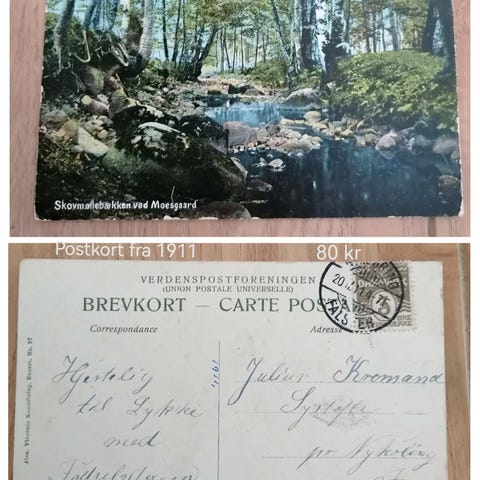 Skovmøllebækken ved Moesgaard
Postkort fra 1911
80 kr
VERDENSPOSTFORENINGEN
(UNION POSTALE UNIVERSELLE)
BREVKORT — CARTE POS
Correspondance
Adresse
FALSTER
3
ØRE
Alex. Vincents Kunstforlag, Eneret, No. 97
1911
Hjertelig
til Lykke
med
Fødselsdagen
Julius Kromand
Systofte
pr Nykøbing
F